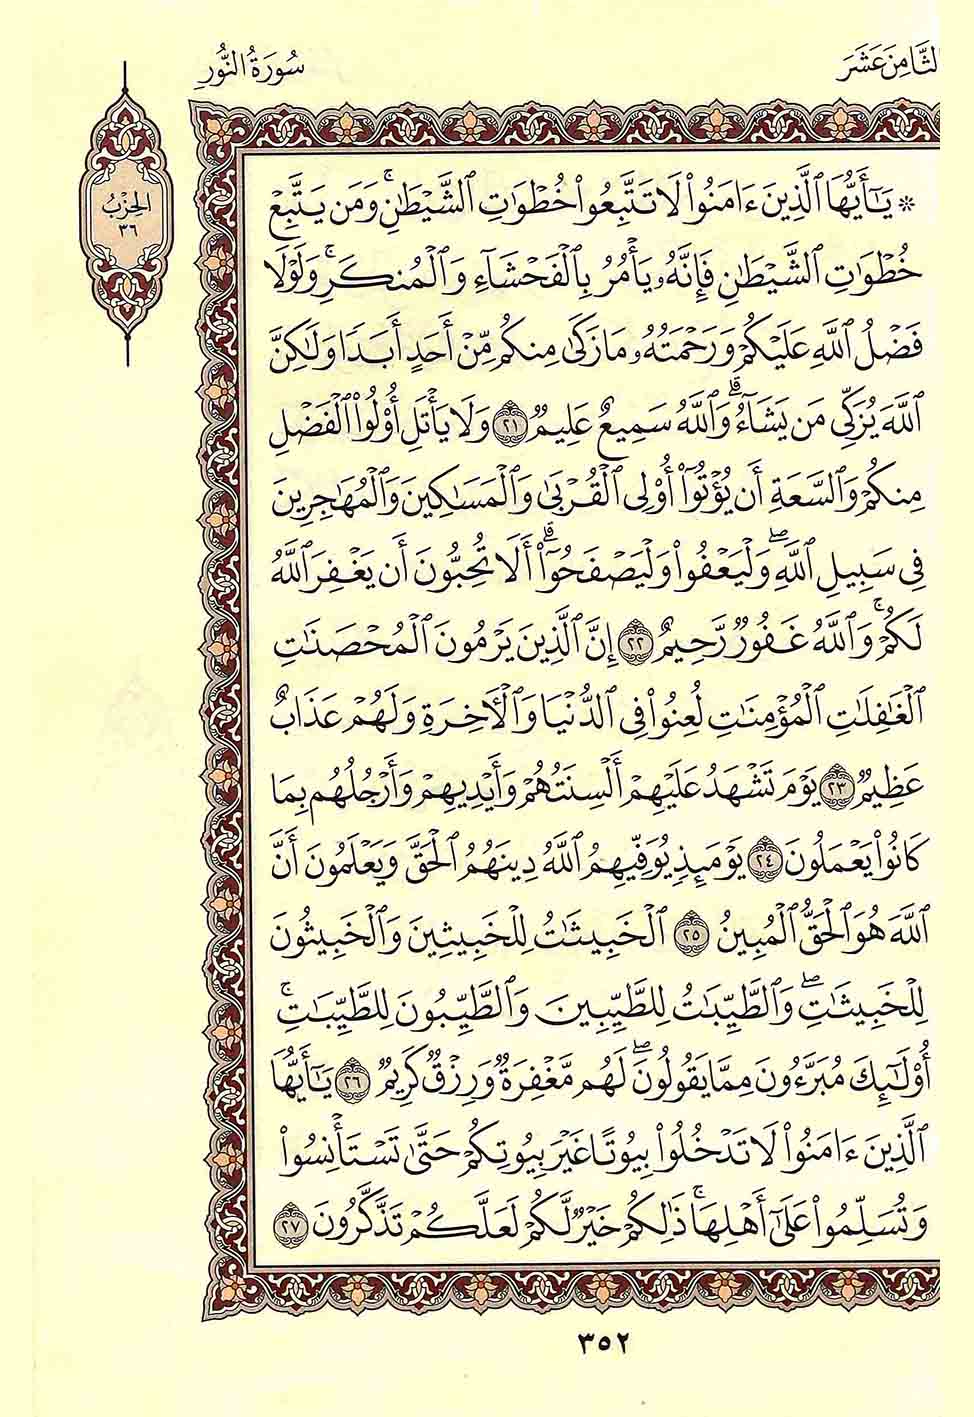 الثَّامِنَ عَشَرَ
سُورَةُ النُّورِ
الحِزْبُ
٣٦
۞ يَٰٓأَيُّهَا ٱلَّذِينَ ءَامَنُوا۟ لَا تَتَّبِعُوا۟ خُطُوَٰتِ ٱلشَّيْطَٰنِ ۚ وَمَن يَتَّبِعْ
خُطُوَٰتِ ٱلشَّيْطَٰنِ فَإِنَّهُۥ يَأْمُرُ بِٱلْفَحْشَآءِ وَٱلْمُنكَرِ ۚ وَلَوْلَا
فَضْلُ ٱللَّهِ عَلَيْكُمْ وَرَحْمَتُهُۥ مَا زَكَىٰ مِنكُم مِّنْ أَحَدٍ أَبَدًا وَلَٰكِنَّ
ٱللَّهَ يُزَكِّى مَن يَشَآءُ ۗ وَٱللَّهُ سَمِيعٌ عَلِيمٌ ٢١ وَلَا يَأْتَلِ أُو۟لُوا۟ ٱلْفَضْلِ
مِنكُمْ وَٱلسَّعَةِ أَن يُؤْتُوٓا۟ أُو۟لِى ٱلْقُرْبَىٰ وَٱلْمَسَٰكِينَ وَٱلْمُهَٰجِرِينَ
فِى سَبِيلِ ٱللَّهِ ۖ وَلْيَعْفُوا۟ وَلْيَصْفَحُوٓا۟ ۗ أَلَا تُحِبُّونَ أَن يَغْفِرَ ٱللَّهُ
لَكُمْ ۚ وَٱللَّهُ غَفُورٌ رَّحِيمٌ ٢٢ إِنَّ ٱلَّذِينَ يَرْمُونَ ٱلْمُحْصَنَٰتِ
ٱلْغَٰفِلَٰتِ ٱلْمُؤْمِنَٰتِ لُعِنُوا۟ فِى ٱلدُّنْيَا وَٱلْءَاخِرَةِ وَلَهُمْ عَذَابٌ
عَظِيمٌ ٢٣ يَوْمَ تَشْهَدُ عَلَيْهِمْ أَلْسِنَتُهُمْ وَأَيْدِيهِمْ وَأَرْجُلُهُم بِمَا
كَانُوا۟ يَعْمَلُونَ ٢٤ يَوْمَئِذٍ يُوَفِّيهِمُ ٱللَّهُ دِينَهُمُ ٱلْحَقَّ وَيَعْلَمُونَ أَنَّ
ٱللَّهَ هُوَ ٱلْحَقُّ ٱلْمُبِينُ ٢٥ ٱلْخَبِيثَٰتُ لِلْخَبِيثِينَ وَٱلْخَبِيثُونَ
لِلْخَبِيثَٰتِ ۖ وَٱلطَّيِّبَٰتُ لِلطَّيِّبِينَ وَٱلطَّيِّبُونَ لِلطَّيِّبَٰتِ ۚ
أُو۟لَٰٓئِكَ مُبَرَّءُونَ مِمَّا يَقُولُونَ ۖ لَهُم مَّغْفِرَةٌ وَرِزْقٌ كَرِيمٌ ٢٦ يَٰٓأَيُّهَا
ٱلَّذِينَ ءَامَنُوا۟ لَا تَدْخُلُوا۟ بُيُوتًا غَيْرَ بُيُوتِكُمْ حَتَّىٰ تَسْتَأْنِسُوا۟
وَتُسَلِّمُوا۟ عَلَىٰٓ أَهْلِهَا ۚ ذَٰلِكُمْ خَيْرٌ لَّكُمْ لَعَلَّكُمْ تَذَكَّرُونَ ٢٧
٣٥٢